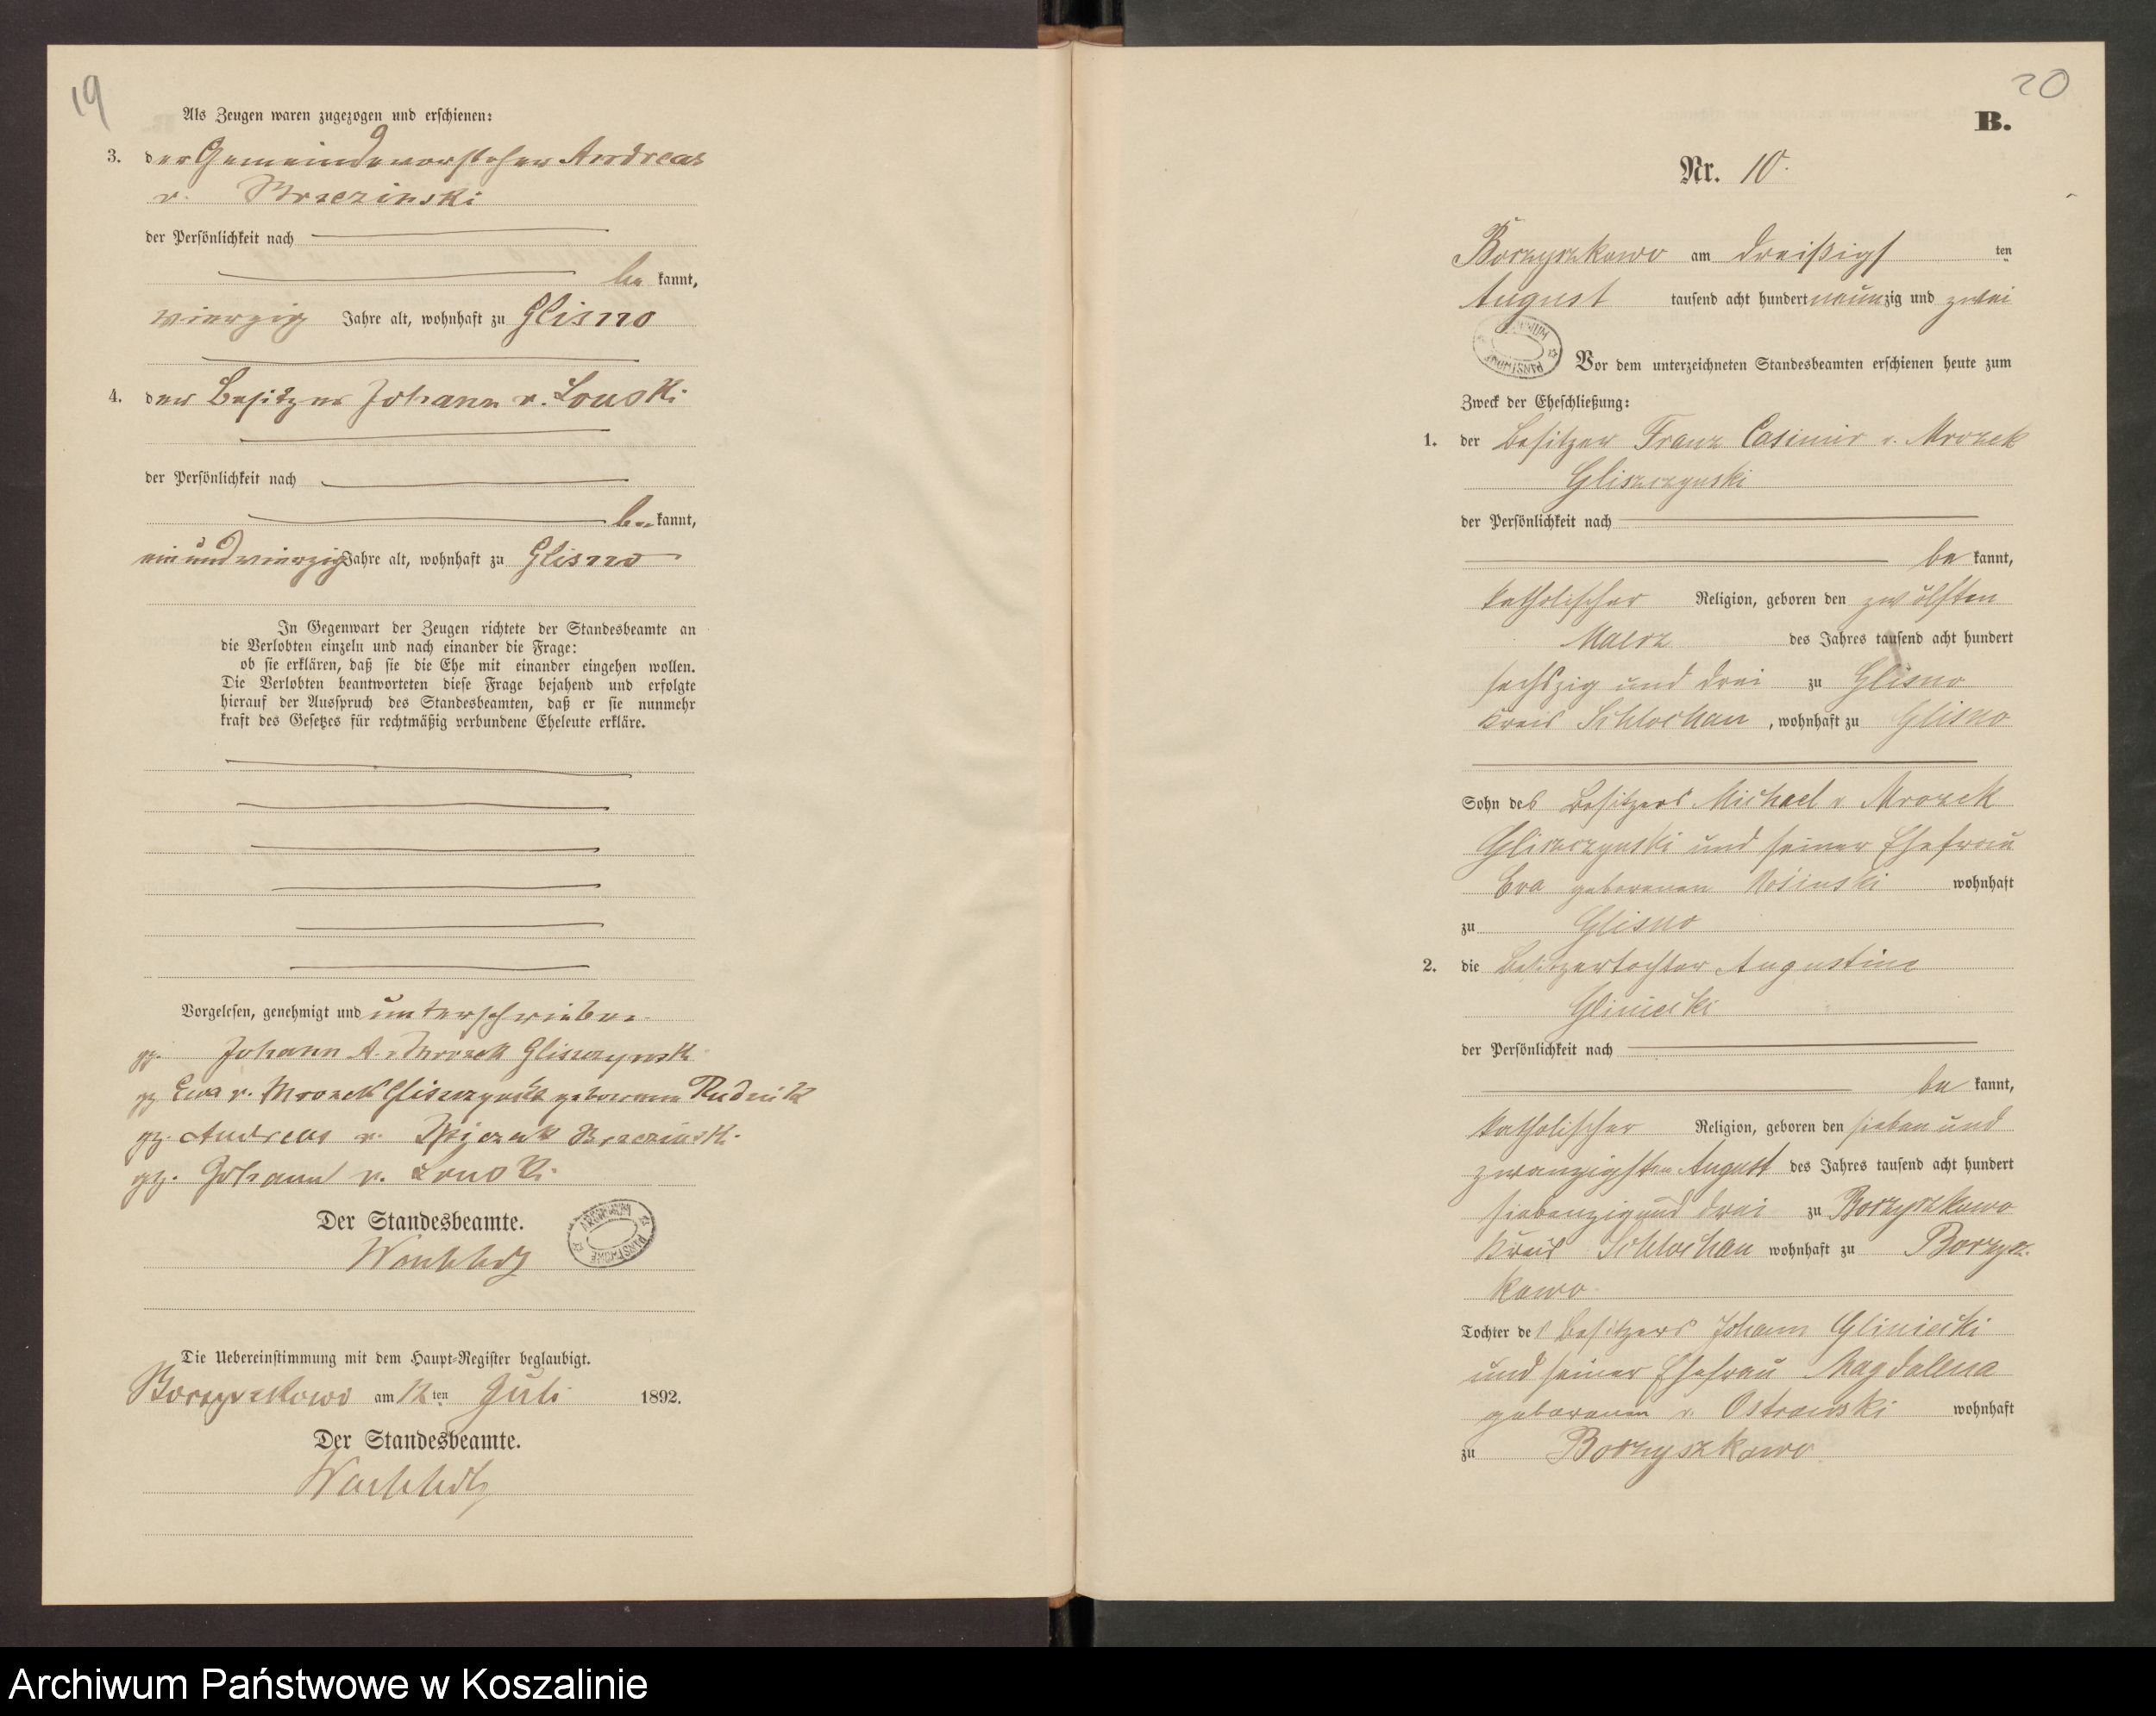 19
Als Zeugen waren zugezogen und erschienen:
3. der Gemeindevorsteher Andreas
v. Brzezinski
der Persönlichkeit nach
be kannt,
vierzig Jahre alt, wohnhaft zu Glisno
4. der Besitzer Johann v. Lonski
der Persönlichkeit nach
be kannt,
ein und vierzig Jahre alt, wohnhaft zu Glisno
In Gegenwart der Zeugen richtete der Standesbeamte an
die Verlobten einzeln und nach einander die Frage:
ob sie erklären, daß sie die Ehe mit einander eingehen wollen.
Die Verlobten beantworteten diese Frage bejahend und erfolgte
hierauf der Ausspruch des Standesbeamten, daß er sie nunmehr
kraft des Gesetzes für rechtmäßig verbundene Eheleute erkläre.
Vorgelesen, genehmigt und unterschrieben
gz. Johann A. v Mrozek Gliszczynski
gz. Eva v. Mrozek Gliszczynski geborene Rudnik
gz. Andreas v. Brzezinski
gz. Johann v. Lonski
Der Standesbeamte.
ARCHIWUM PAŃSTWOWE
Die Uebereinstimmung mit dem Haupt-Register beglaubigt.
Borzyszkowo am 12 ten Juli 1892.
Der Standesbeamte.
20
B.
Nr. 10.
Borzyszkowo am dreißigsten
August tausend acht hundert neunzig und zwei
Vor dem unterzeichneten Standesbeamten erschienen heute zum
Zweck der Eheschließung:
1. der Besitzer Franz Casimir v. Mrozek
Gliszczynski
der Persönlichkeit nach
be kannt,
katholischer Religion, geboren den zwölften
Maerz des Jahres tausend acht hundert
sechszig und drei zu Glisno
Kreis Schlochau, wohnhaft zu Glisno
Sohn des Besitzers Michael v Mrozek
Gliszczynski und seiner Ehefrau
Eva geborenen wohnhaft
zu Glisno
2. die Besitzertochter Augustine
Gliniecki
der Persönlichkeit nach
be kannt,
katholischer Religion, geboren den sieben und
zwanzigsten August des Jahres tausend acht hundert
siebenzig und drei zu Borzyszkowo
Kreis Schlochau wohnhaft zu Borzysz-
kowo
Tochter des Besitzers Johann Gliniecki
und seiner Ehefrau Magdalena
geborenen v. Ostrowski wohnhaft
zu Borzyszkowo
Archiwum Państwowe w Koszalinie